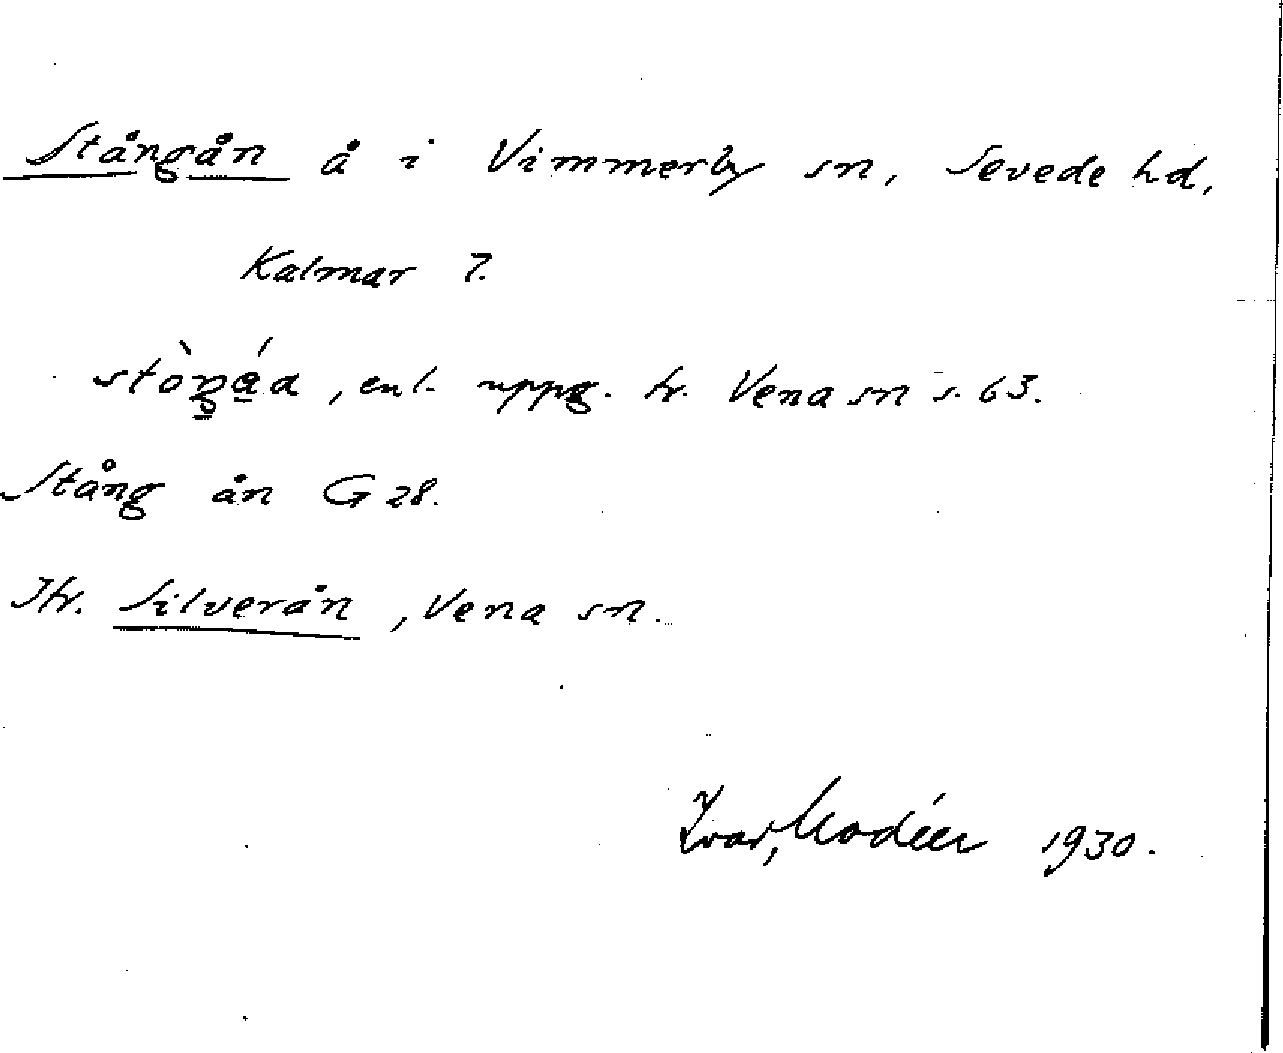 Stångån å i Vimmerby sn, Sevede hd,
Kalmar l.
, enl. uppg. fr. Vena sn s. 63.
Stång ån G 28.
Jfr. Silverån, Vena sn.
Ivar Modéer 1930.